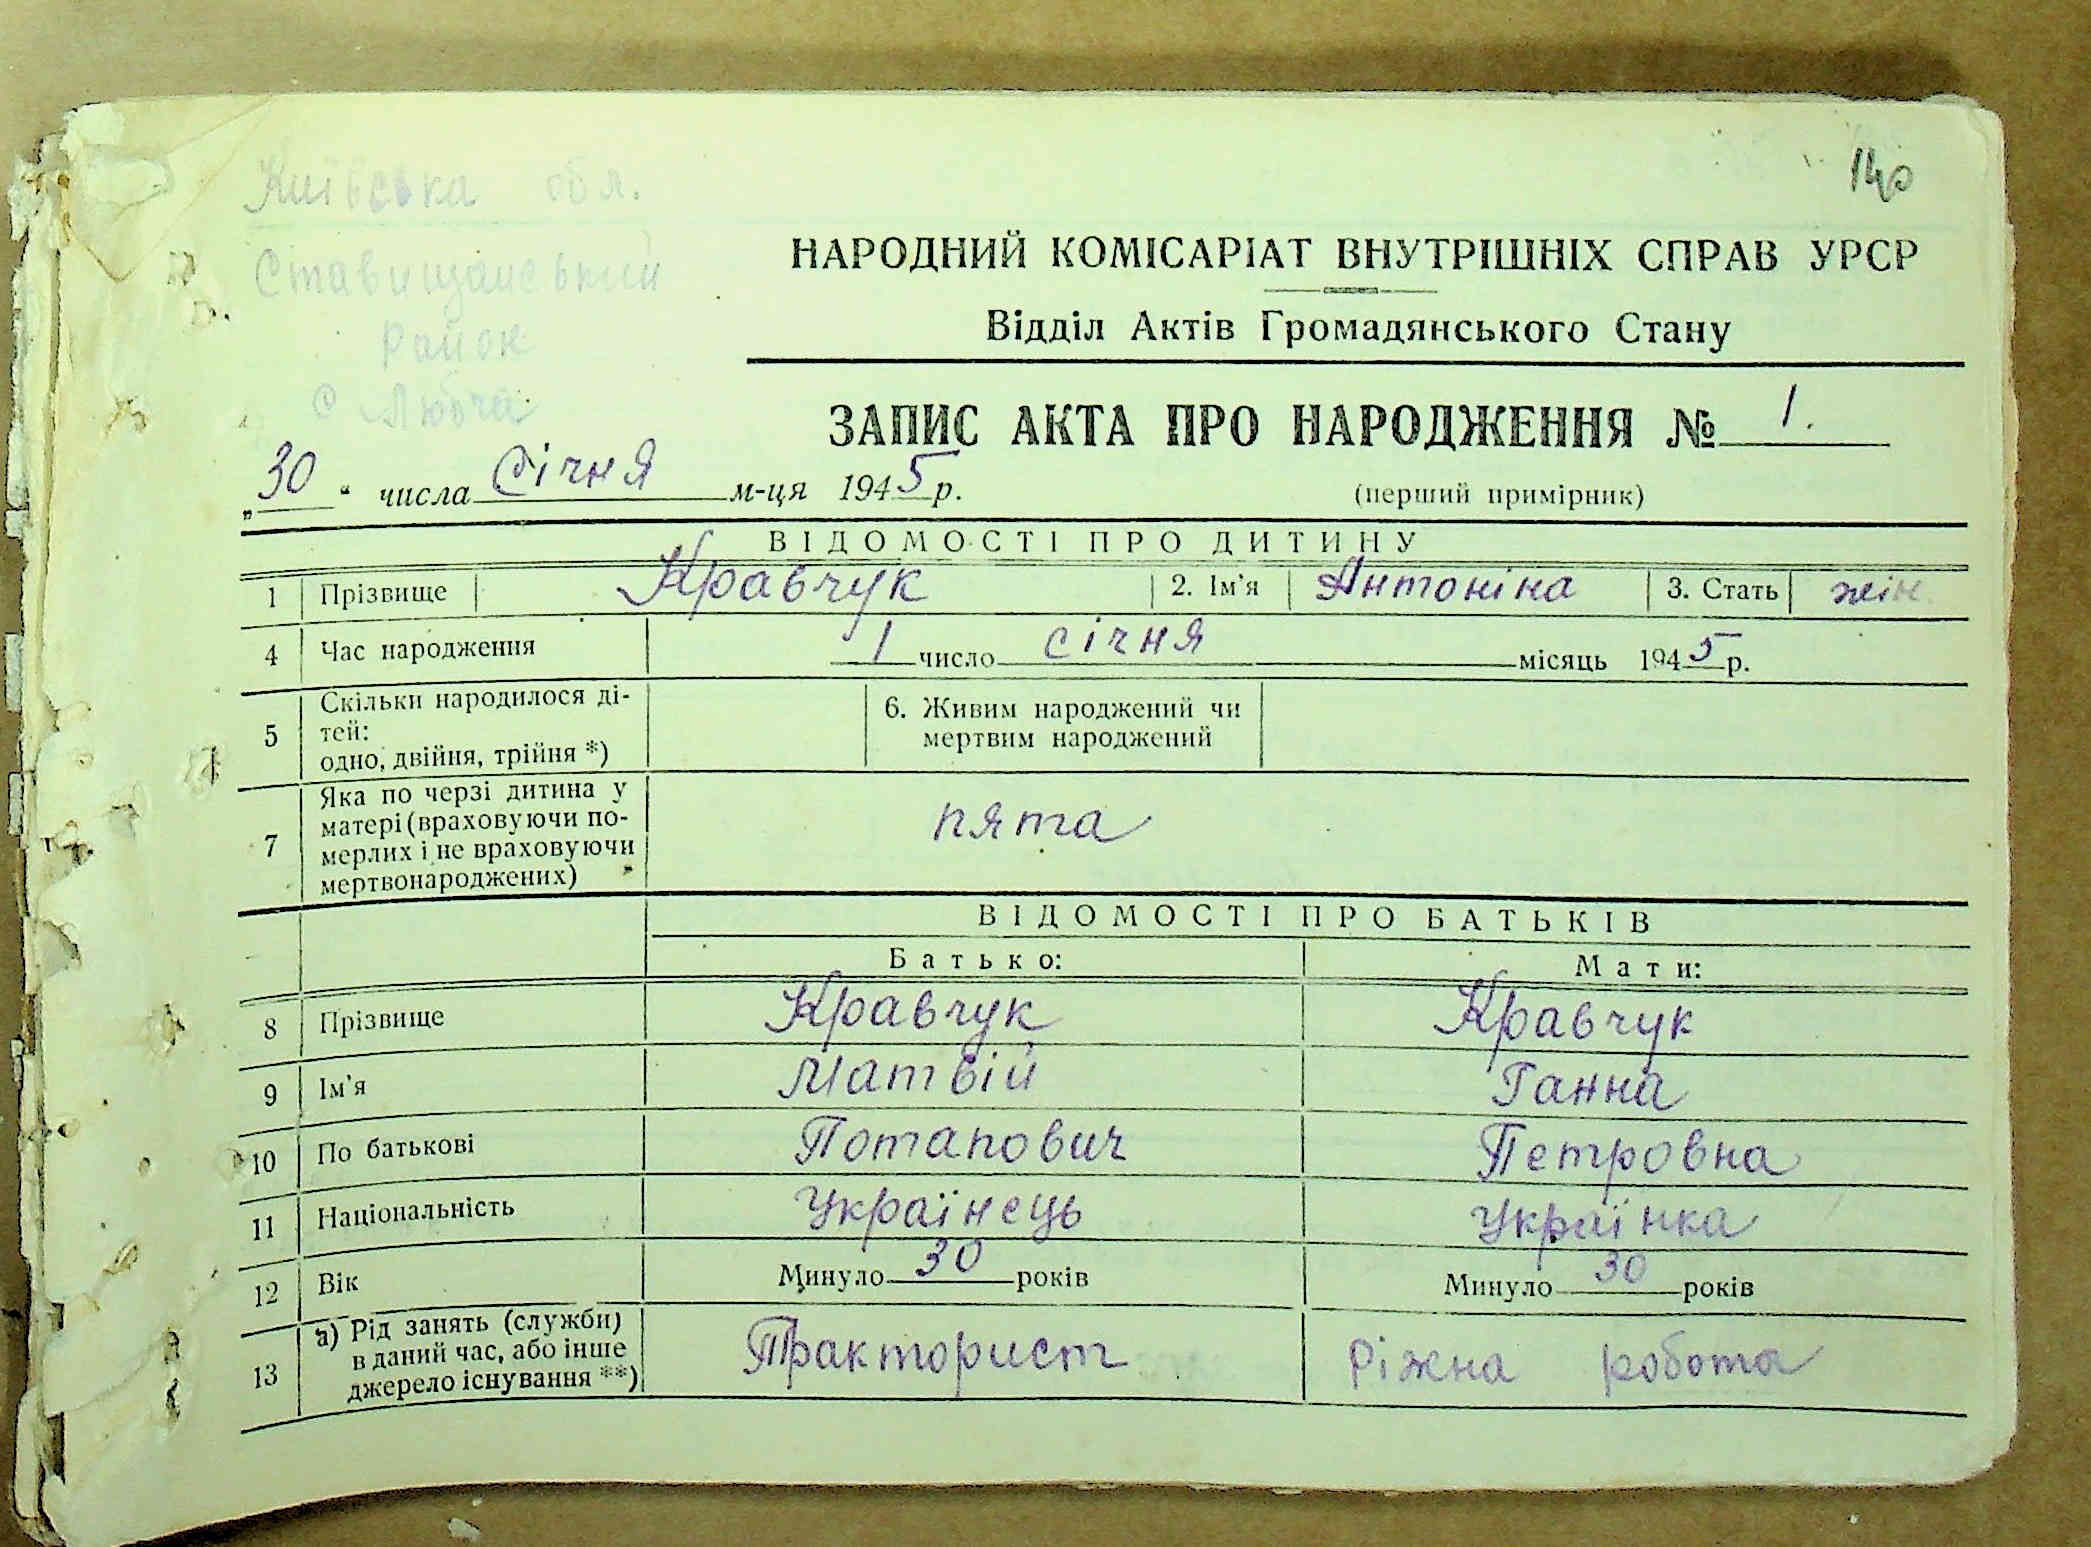 140
Київська обл.
Ставищанський
Район
с Любча
НАРОДНИЙ КОМІСАРІАТ ВНУТРІШНІХ СПРАВ УРСР
Відділ Актів Громадянського Стану
ЗАПИС АКТА ПРО НАРОДЖЕННЯ № 1.
„30“ числа Січня м-ця 1945 р.
(перший примірник)
ВІДОМОСТІ ПРО ДИТИНУ
1 Прізвище Кравчук 2. Ім'я Антоніна 3. Стать жін.
4 Час народження 1 число січня місяць 1945 р.
5 Скільки народилося ді-
тей:
одно, двійня, трійня *)
6. Живим народжений чи
мертвим народжений
7 Яка по черзі дитина у
матері (враховуючи по-
мерлих і не враховуючи
мертвонароджених)
пята
ВІДОМОСТІ ПРО БАТЬКІВ
Батько: Мати:
8 Прізвище Кравчук Кравчук
9 Ім'я Матвій Ганна
10 По батькові Потапович Петровна
11 Національність Українець Українка
12 Вік Минуло 30 років Минуло 30 років
13 а) Рід занять (служби)
в даний час, або інше
джерело існування **)
Тракторист ріжна робота